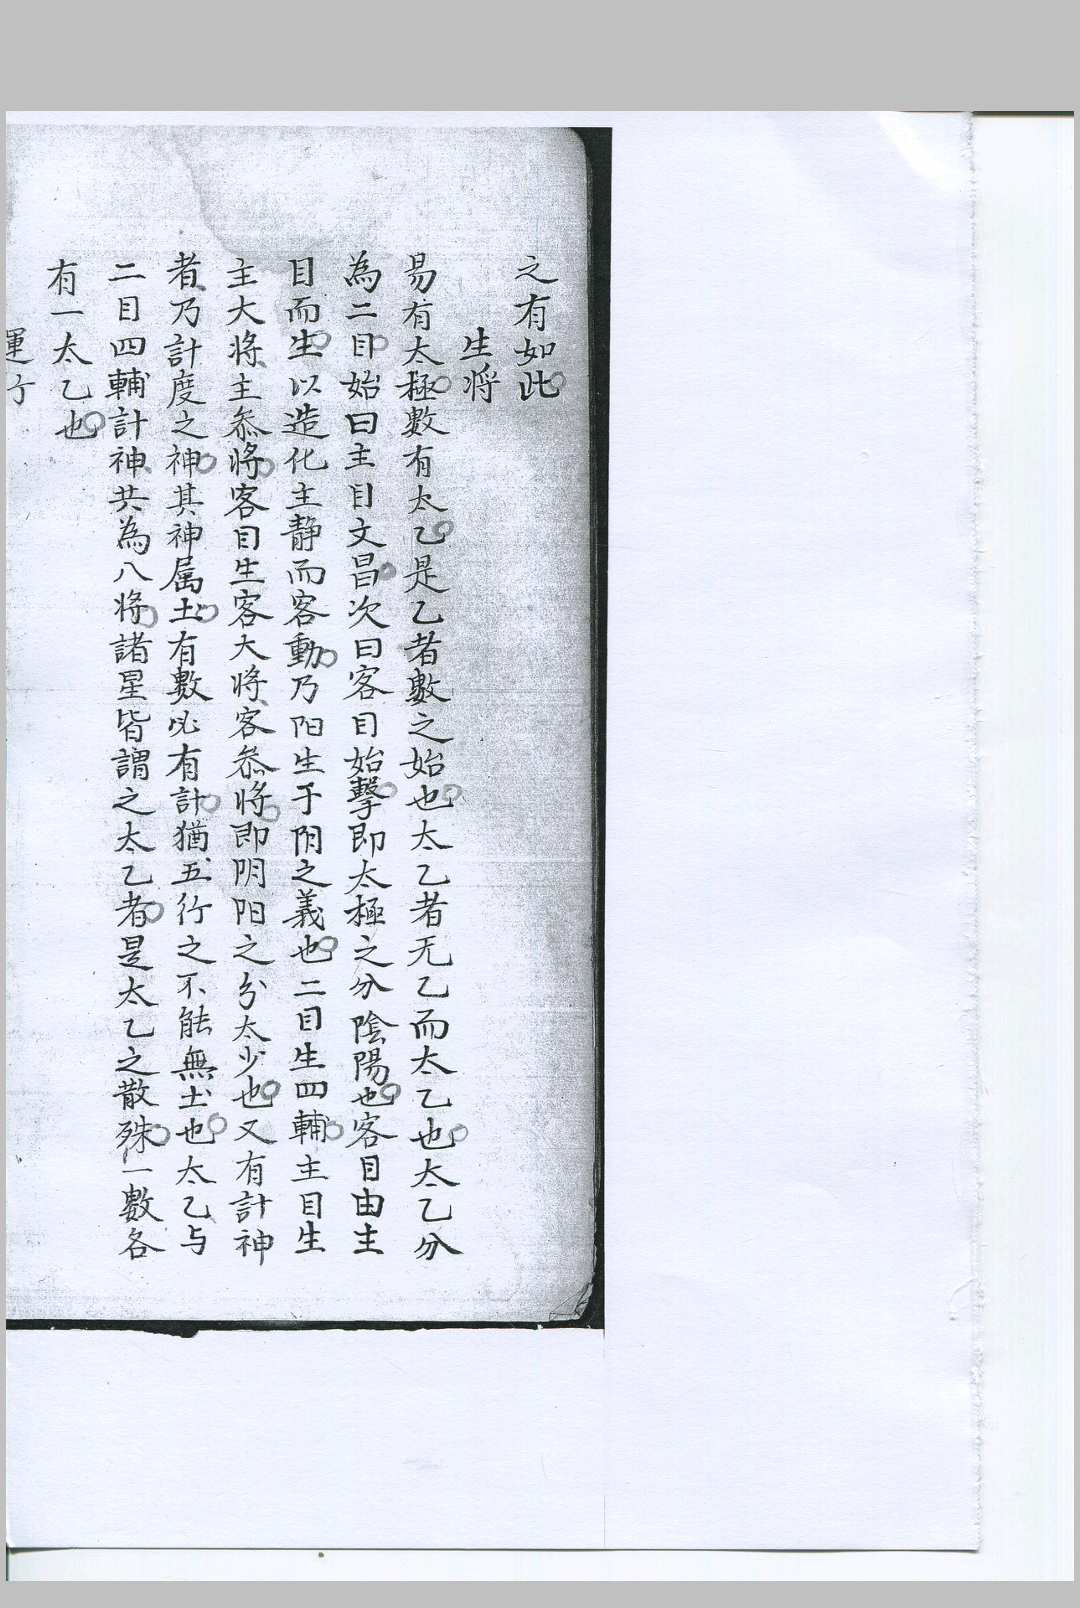 之有如此
生将
易有太極數有太乙是乙者數之始也太乙者无乙而太乙也太乙分
為二目始曰主目文昌次曰客目始擊即太極之分陰陽也客目由主
目而生以造化主静而客動乃阳生于阴之義也二目生四輔主目生
主大将主叅将客目生客大将客叅将即阴阳之分太少也又有計神
者乃計度之神其神属土有數必有計猶五行之不能無土也太乙与
二目四輔計神共為八将諸星皆謂之太乙者是太乙之散殊一數各
有一太乙也
運行